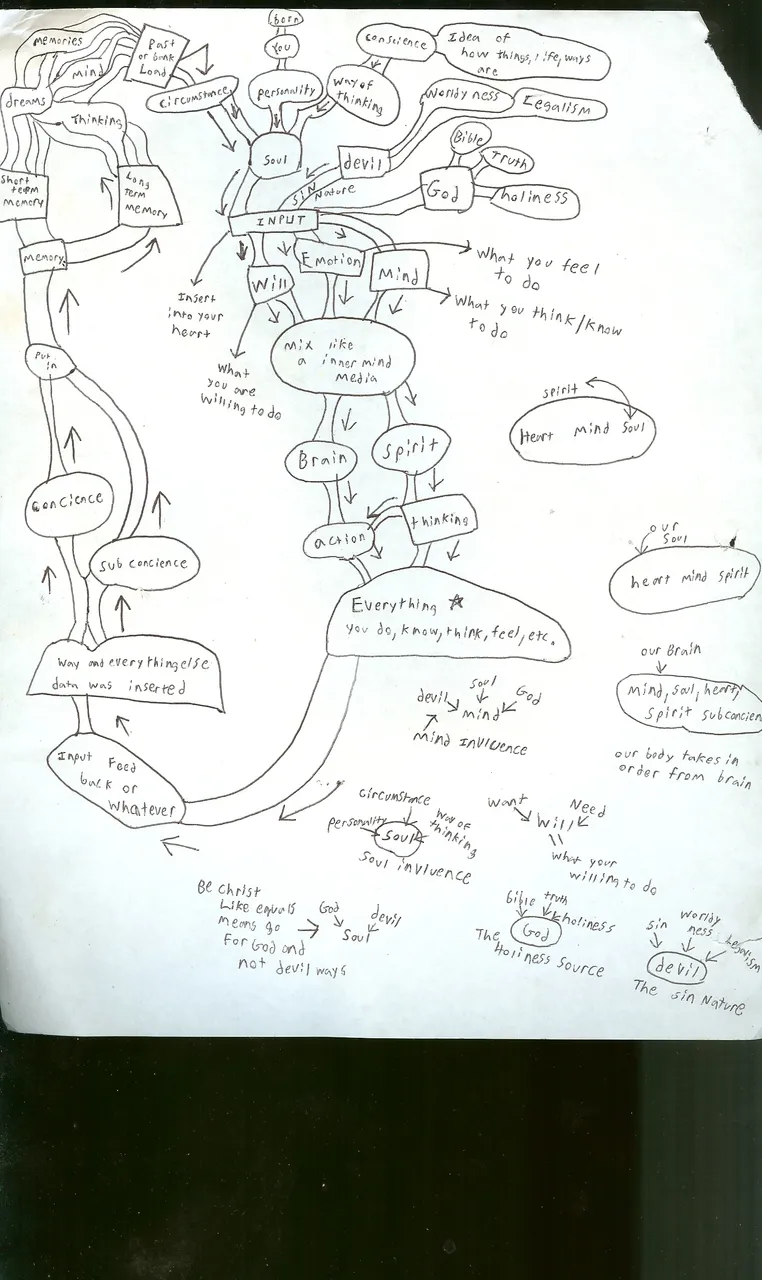 born
you
conscience
Idea of
how things, life, ways
are
memories
Past
or bank
Load
mind
dreams
Thinking
circumstance
personality
way of
thinking
worldyness
Legalism
Soul
devil
Bible
Truth
God
holiness
Short
term
memory
Long
term
memory
sin Nature
INPUT
memory
Will
Emotion
Mind
What you feel
to do
What you think/know
to do
Insert
into your
heart
What
you are
willing to do
Mix like
a inner mind
media
Put
in
spirit
Heart mind Soul
Brain
Spirit
concience
action
thinking
sub concience
our
soul
heart mind spirit
Everything
you do, know, think, feel, etc.
way and everything else
data was inserted
our Brain
Mind, soul, heart,
spirit subconcien
our body takes in
order from brain
soul
devil
God
mind
Mind Invluence
Input Feed
back or
whatever
circumstance
personality
way of
thinking
Soul
Soul invluence
want
Need
Will
what your
willing to do
Be Christ
Like equals
means go
For God and
not devil ways
God
devil
Soul
bible
truth
holiness
God
The
Holiness Source
sin
worldy
ness
Legalism
devil
The sin Nature